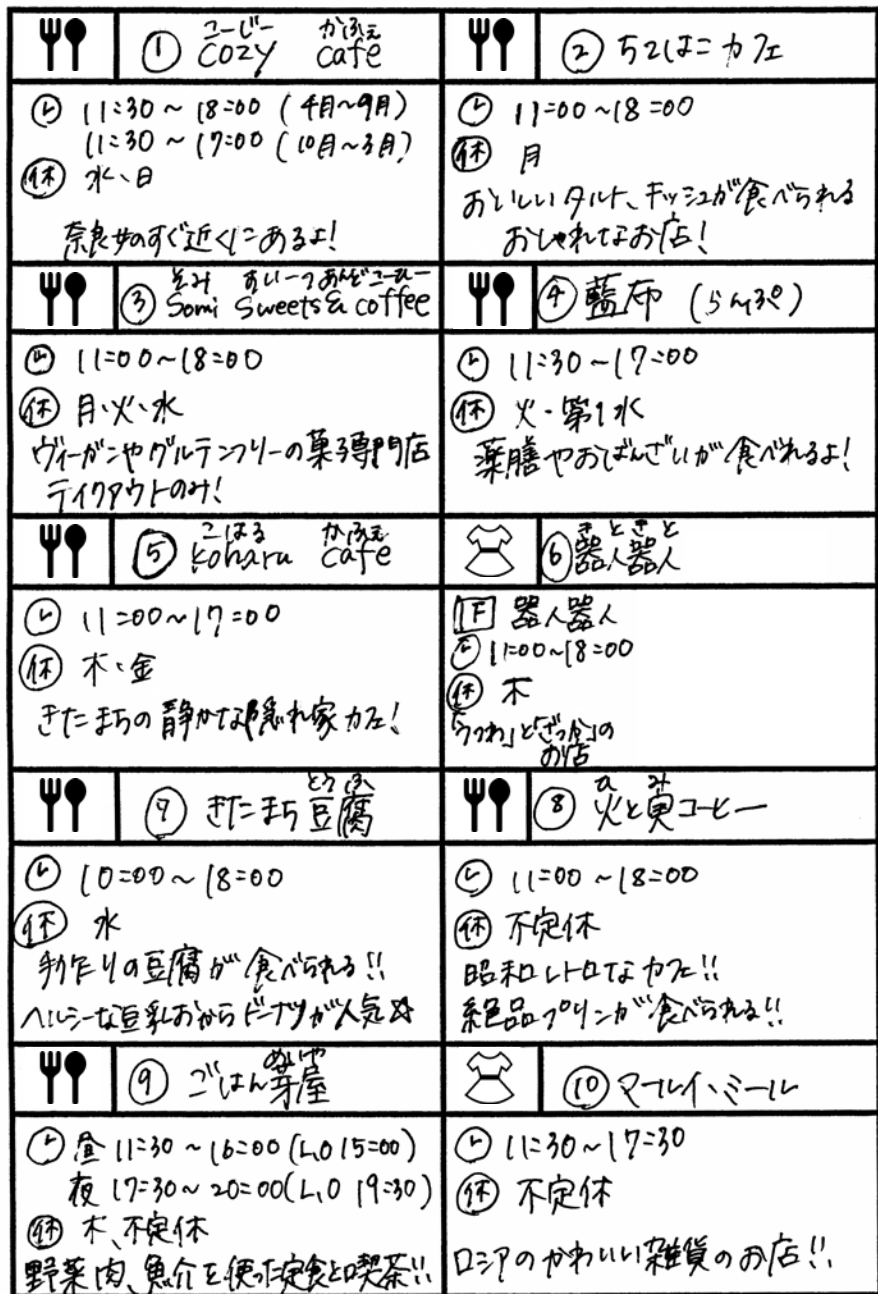 こーじー かふぇ
① cozy cafe
11:30～18:00（4月～9月）
11:30～17:00（10月～3月）
休 水、日
奈良女のすぐ近くにあるよ！
② ちこはこカフェ
11:00～18:00
休 月
おいしいタルト、キッシュが食べられる
おしゃれなお店！
そみ すいーつあんどこーひー
③ Somi Sweets & coffee
11:00～18:00
休 月・火・水
ヴィーガンやグルテンフリーの菓子専門店
テイクアウトのみ！
④ 藍布（らんぷ）
11:30～17:00
休 火・第1水
薬膳やおばんざいが食べれるよ！
こはる かふぇ
⑤ koharu cafe
11:00～17:00
休 木、金
きたまちの静かな隠れ家カフェ！
きときと
⑥ 器人器人
1F 器人器人
11:00～18:00
休 木
「うつわ」と「ざっか」の
お店
とうふ
⑦ きたまち豆腐
10:00～18:00
休 水
手作りの豆腐が食べられる!!
ヘルシーな豆乳おからドーナツが人気☆
ひ み
⑧ 火と実コーヒー
11:00～18:00
休 不定休
昭和レトロなカフェ!!
絶品プリンが食べられる!!
めいや
⑨ ごはん芽屋
昼 11:30～16:00（L,O 15:00）
夜 17:30～20:00（L,O 19:30）
休 木、不定休
野菜、肉、魚介を使った定食と喫茶!!
⑩ マールイ・ミール
11:30～17:30
休 不定休
ロシアのかわいい雑貨のお店!!